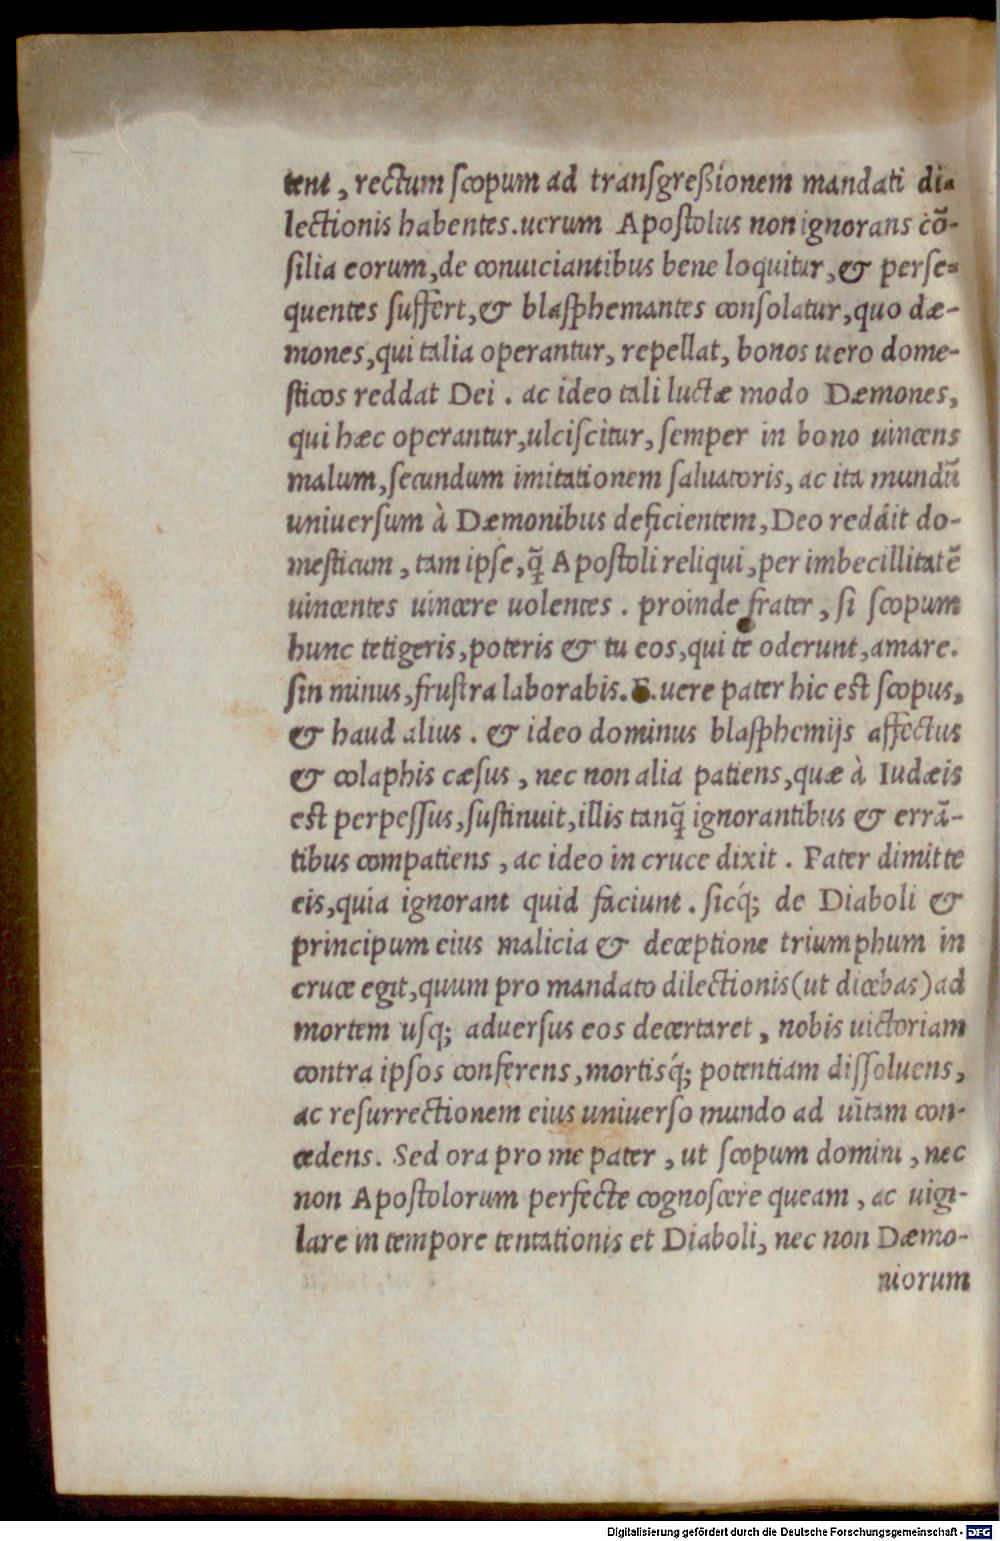 tent, rectum scopum ad transgreßionem mandati di-
lectionis habentes. uerum Apostolus non ignorans cō-
silia eorum, de conuiciantibus bene loquitur, & perse-
quentes suffert, & blasphemantes consolatur, quo dæ-
mones, qui talia operantur, repellat, bonos uero dome-
sticos reddat Dei. ac ideo tali luctæ modo Dæmones,
qui hæc operantur, ulciscitur, semper in bono uincens
malum, secundum imitationem saluatoris, ac ita mundū
uniuersum à Dæmonibus deficientem, Deo reddit do-
mesticum, tam ipse, q̄ Apostoli reliqui, per imbecillitatē
uincentes uincere uolentes. proinde frater, si scopum
hunc tetigeris, poteris & tu eos, qui te oderunt, amare.
sin minus, frustra laborabis. F. uere pater hic est scopus,
& haud alius. & ideo dominus blasphemijs affectus
& colaphis cæsus, nec non alia patiens, quæ à Iudæis
est perpessus, sustinuit, illis tanq̄ ignorantibus & errā-
tibus compatiens, ac ideo in cruce dixit. Pater dimitte
eis, quia ignorant quid faciunt. sicq́; de Diaboli &
principum eius malicia & deceptione triumphum in
cruce egit, quum pro mandato dilectionis (ut dicebas) ad
mortem usq; aduersus eos decertaret, nobis uictoriam
contra ipsos conferens, mortisq́; potentiam dissoluens,
ac resurrectionem eius uniuerso mundo ad uitam con-
cedens. Sed ora pro me pater, ut scopum domini, nec
non Apostolorum perfecte cognoscere queam, ac uigi-
lare in tempore tentationis et Diaboli, nec non Dæmo-
niorum
Digitalisierung gefördert durch die Deutsche Forschungsgemeinschaft - DFG